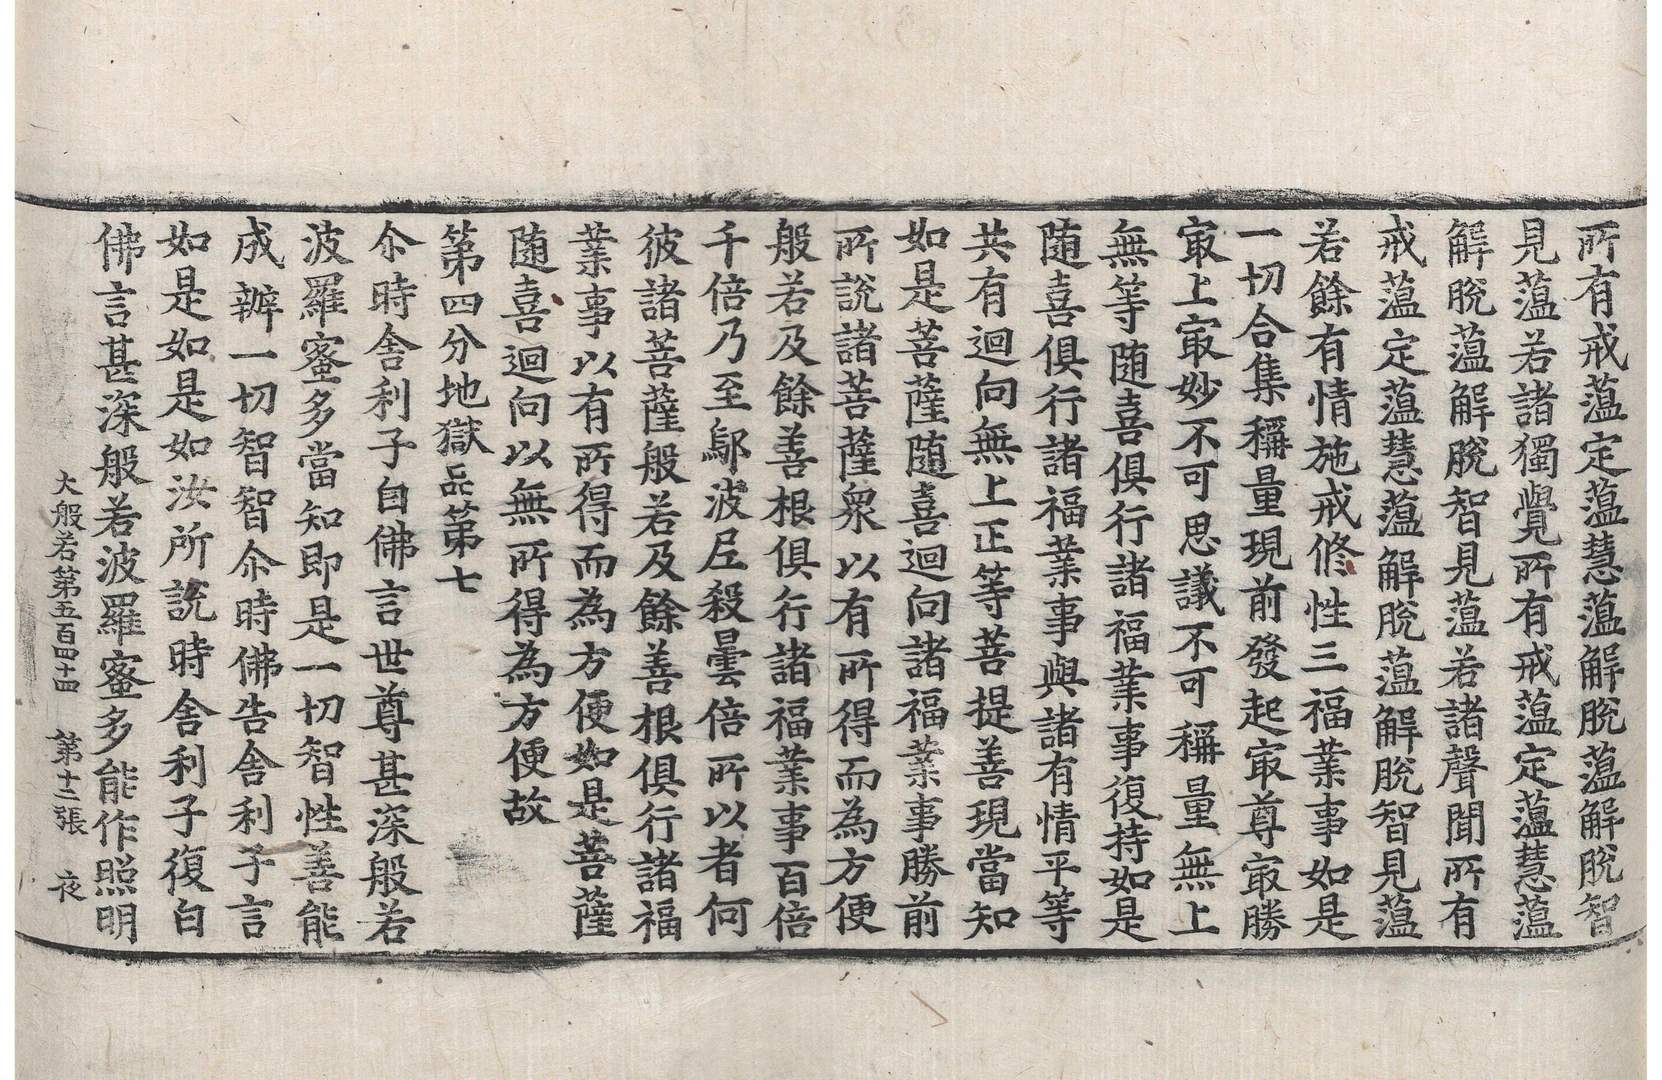 所有戒蕰定蕰慧蕰解脫蕰解脫智
見蕰若諸獨覺所有戒蕰定蕰慧蕰
解脫蕰解脫智見蕰若諸聲聞所有
戒蕰定蕰慧蕰解脫蕰解脫智見蕰
若餘有情施戒修性三福業事如是
一切合集稱量現前發起㝡尊㝡勝
㝡上㝡妙不可思議不可稱量無上
無等随喜俱行諸福業事復持如是
随喜俱行諸福業事與諸有情平等
共有迴向無上正等菩提善現當知
如是菩薩随喜迴向諸福業事勝前
所說諸菩薩衆以有所得而為方便
般若及餘善根俱行諸福業事百倍
千倍乃至鄔波尼殺曇倍所以者何
彼諸菩薩般若及餘善根俱行諸福
業事以有所得而為方便如是菩薩
随喜迴向以無所得為方便故
第四分地獄品第七
尒時舍利子白佛言世尊甚深般若
波羅蜜多當知即是一切智智性善能
成辦一切智智尒時佛告舍利子言
如是如是如汝所說時舍利子復白
佛言甚深般若波羅蜜多能作照明
大般若第五百四十四 第十二張 夜